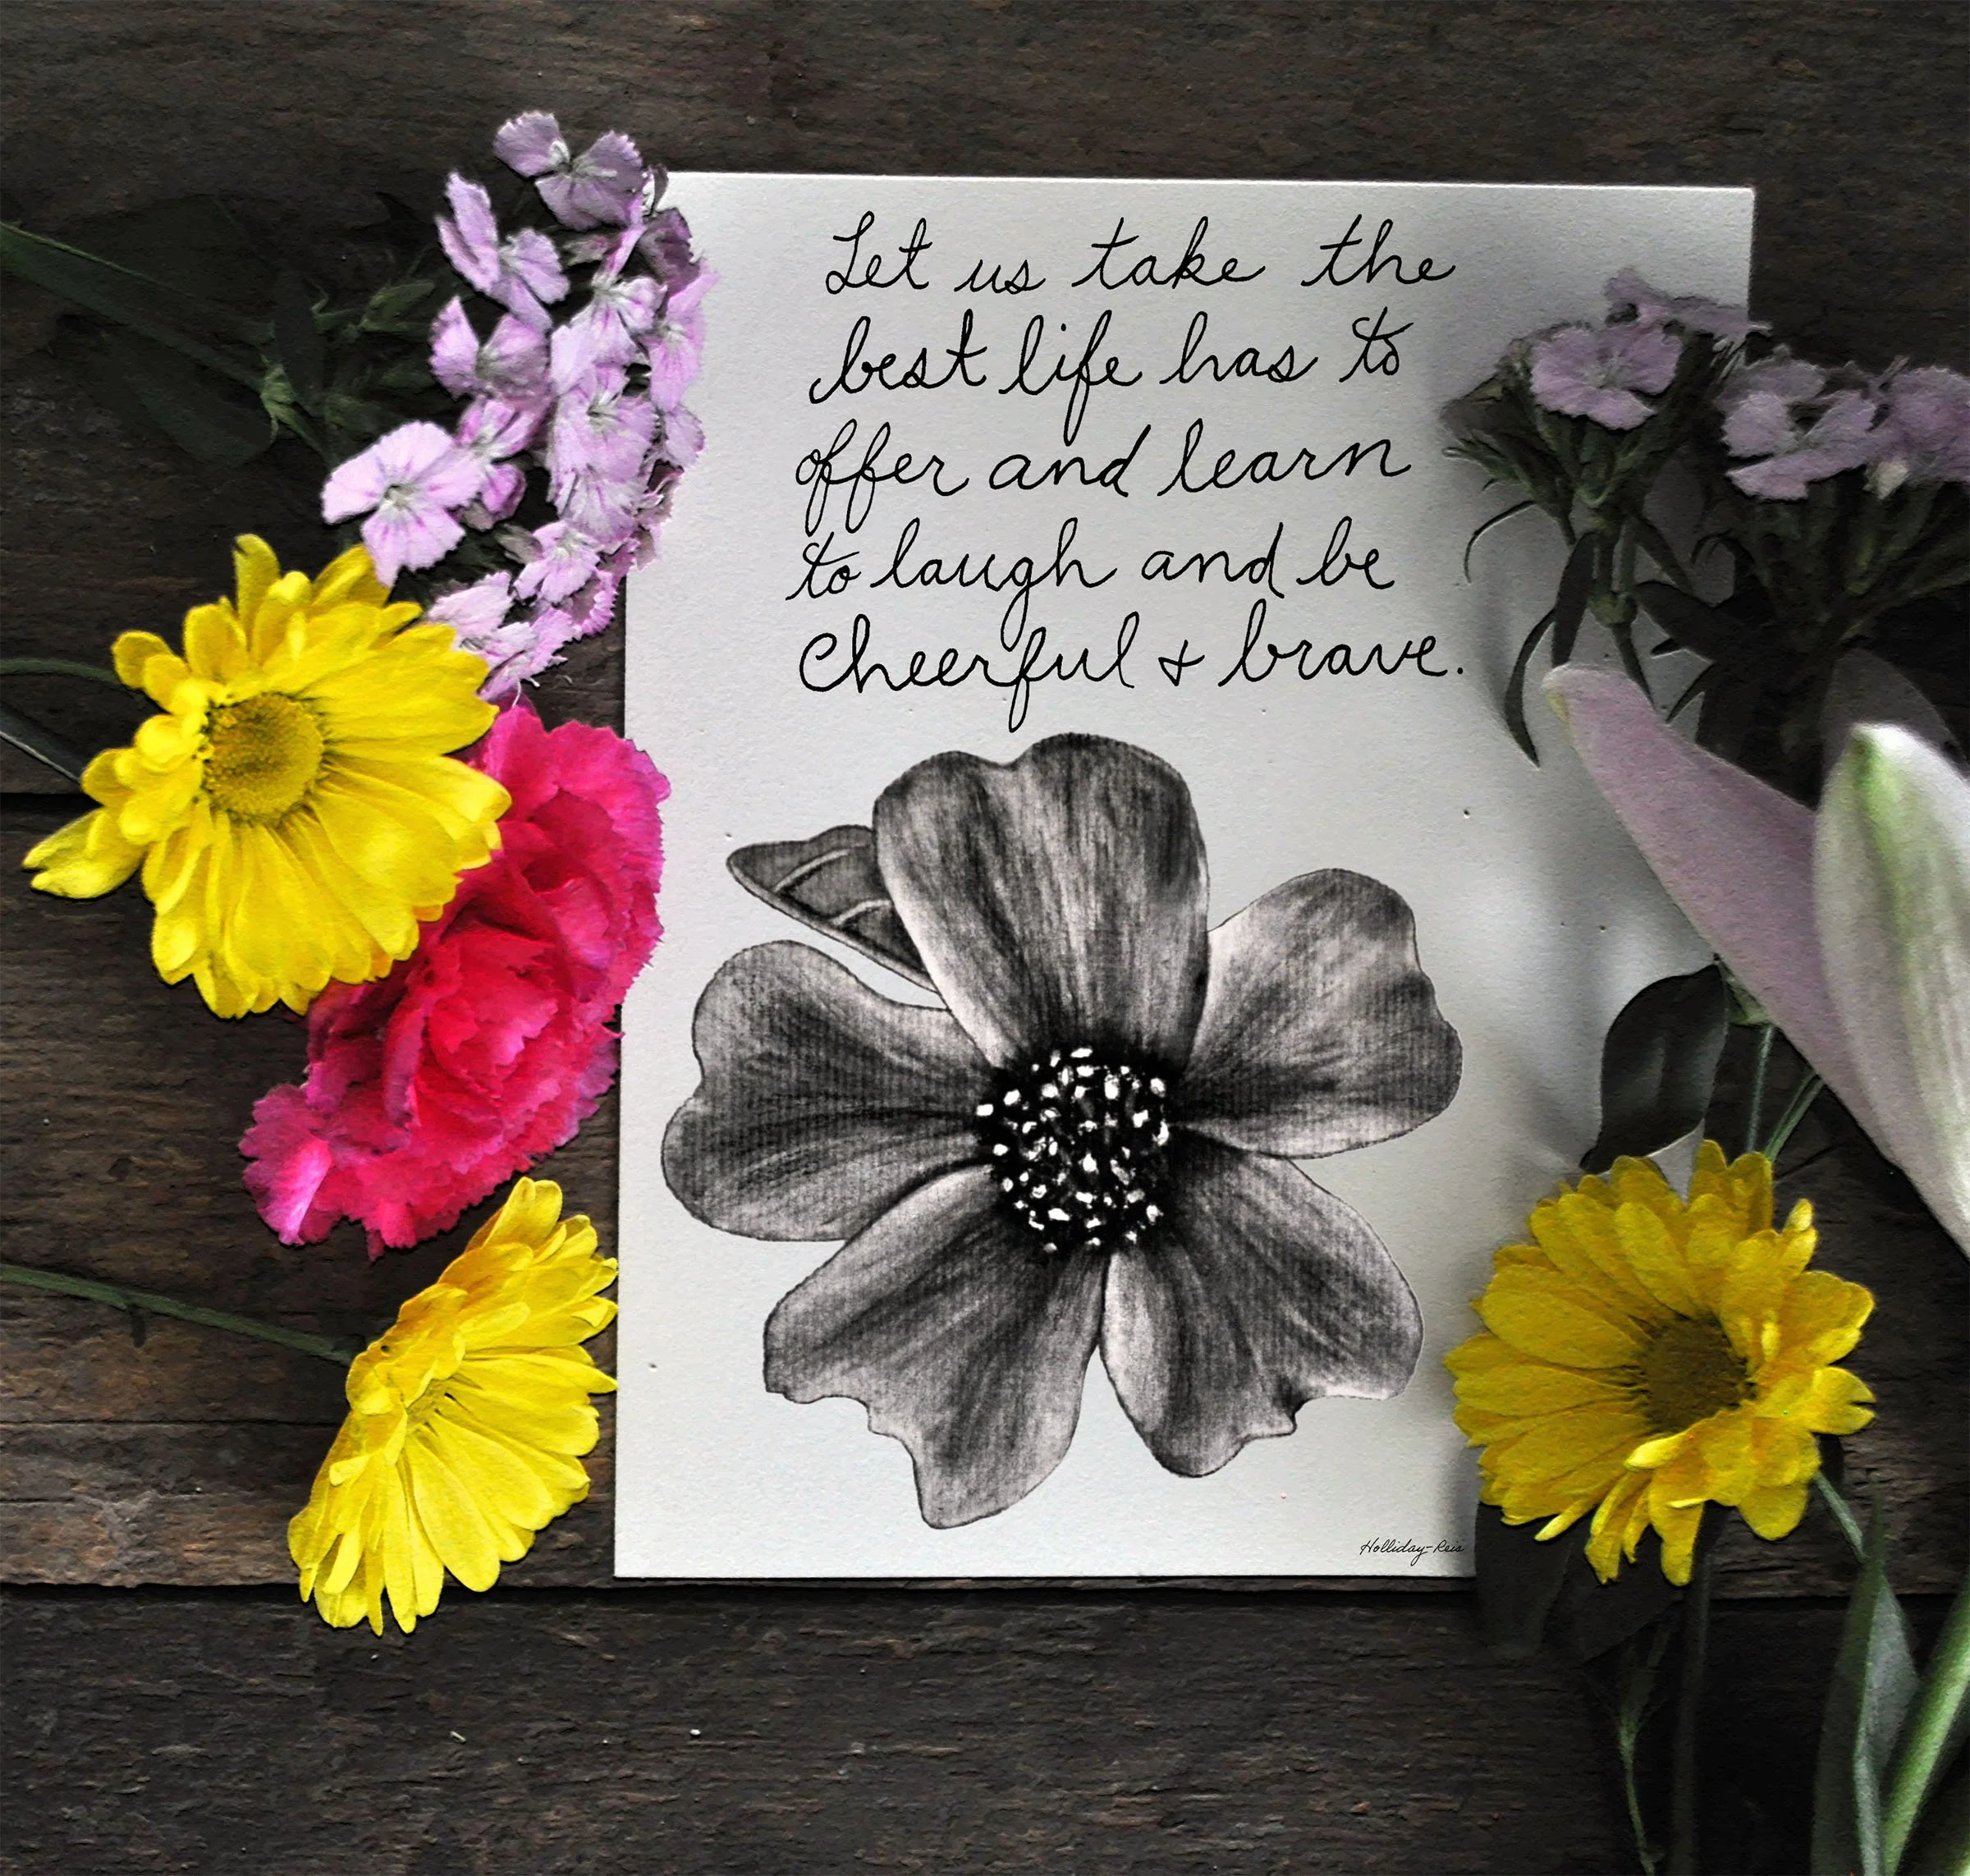 Let us take the
best life has to
offer and learn
to laugh and be
Cheerful + brave.
Holliday-Reis